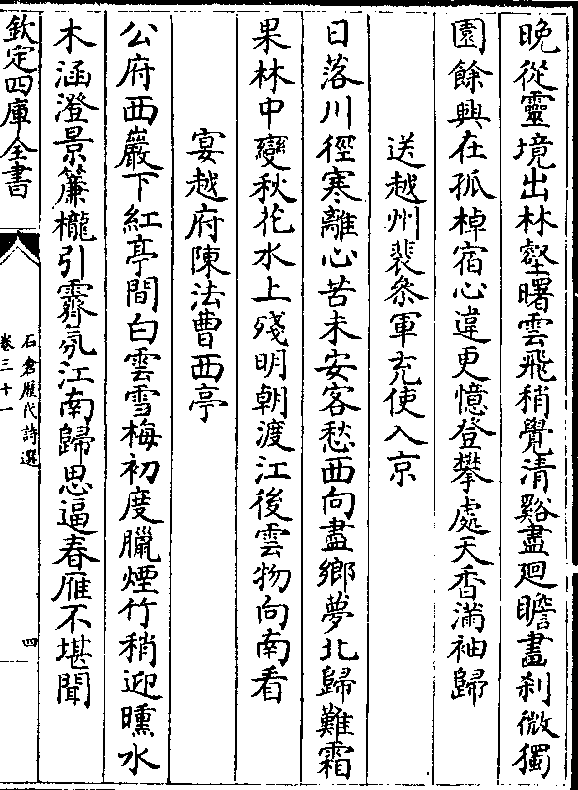 晚從靈境出林壑曙雲飛稍覺清谿盡廻瞻畵刹微獨
園餘興在孤棹宿心違更憶登攀處天香滿袖歸
送越州裴叅軍充使入京
日落川徑寒離心苦未安客愁西向盡鄉夢北歸難霜
果林中變秋花水上殘明朝渡江後雲物向南看
宴越府陳法曹西亭
公府西巖下紅亭間白雲雪梅初度臘煙竹稍迎曛水
木涵澄景簾櫳引霽氛江南歸思逼春雁不堪聞
欽定四庫全書
石倉歷代詩選
卷三十一
四